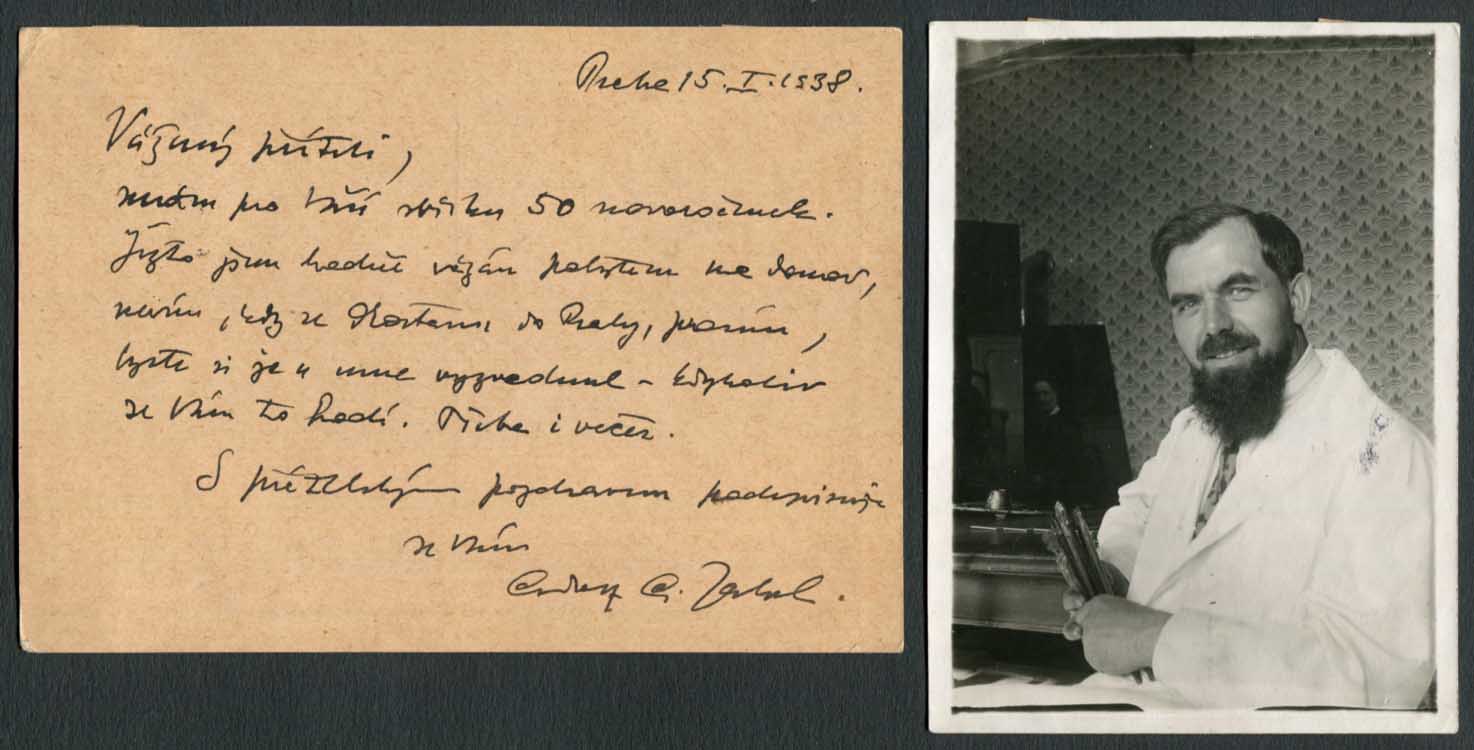 Praha 15. I. 1938.
Vážený příteli,
mám pro Vaší sbírku 50 novoročenek.
Jižto jsem hodně vázán pobytem na domov,
nevím, kdy se dostanu do Prahy, prosím,
byste si je u mne vyzvednul – kdykoliv
se Vám to hodí. Třeba i večer.
S přátelským pozdravem podepisuje
se Vám